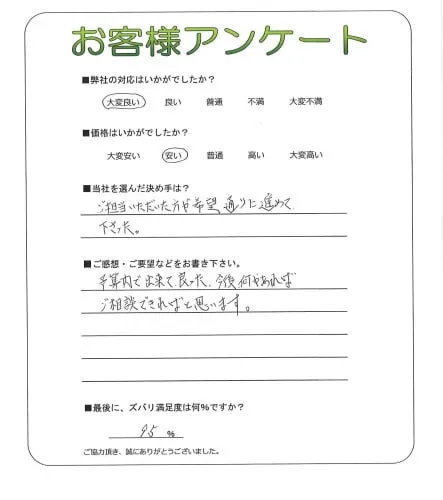 お客様アンケート
■弊社の対応はいかがでしたか？
大変良い 良い 普通 不満 大変不満
■価格はいかがでしたか？
大変安い 安い 普通 高い 大変高い
■当社を選んだ決め手は？
ご担当いただいた方が希望通りに進めて
下さった。
■ご感想・ご要望などをお書き下さい。
予算内で出来て良った、今後何かあれば
ご相談できればと思います。
■最後に、ズバリ満足度は何%ですか？
95 %
ご協力頂き、誠にありがとうございました。